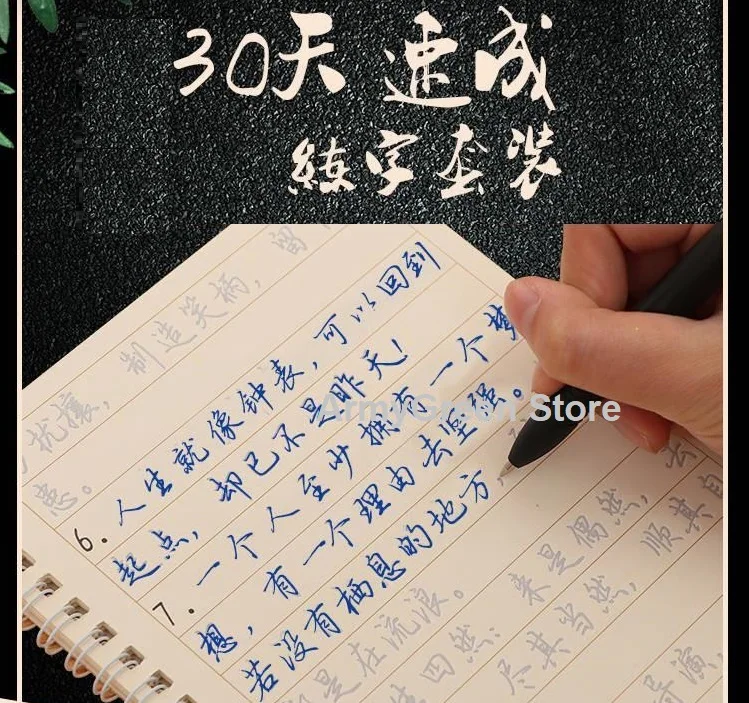 30天 速成
练字套装
制造笑柄，留
扰攘，
忠。
6. 人生就像钟表，可以回到
起点，却已不是昨天！
7. 一个人至少拥有一个梦
想，有一个理由去坚强。
若没有栖息的地方，
是在流浪。来是偶然，去
四然；尽其当然，顺其自
导演，
ArmyGreen Store